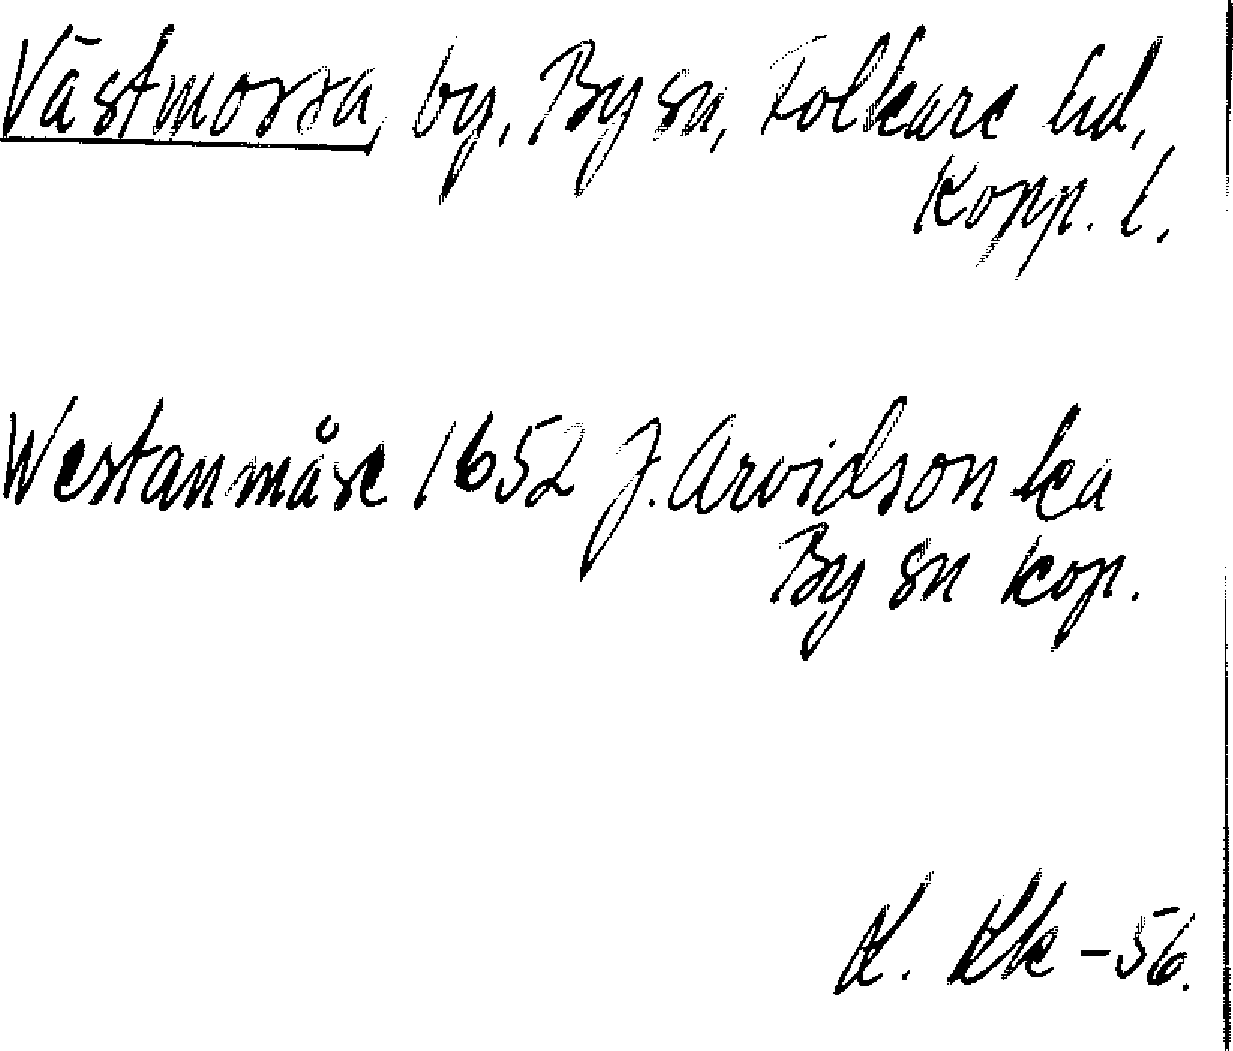 Västmossa, by, By sn, Folkare hd,
Kopp. l.
Westanmåse 1652 J. Arvidson ka
By sn kop.
K. Kk -56.